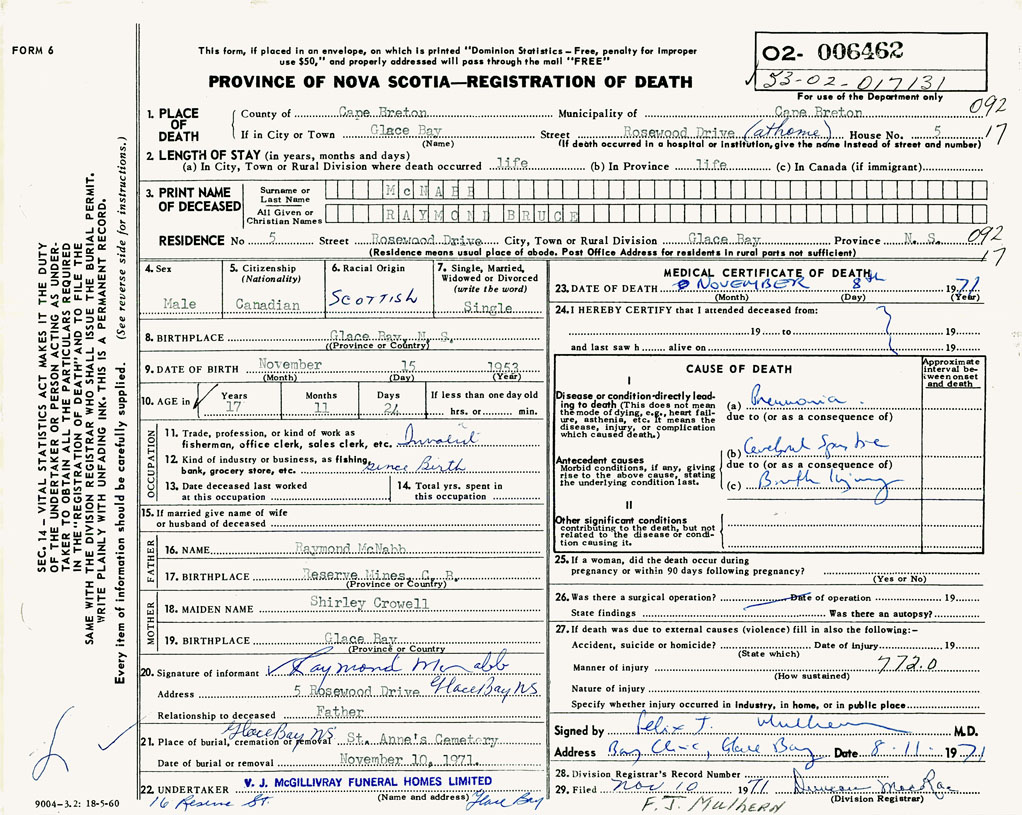 FORM 6
This form, if placed in an envelope, on which is printed "Dominion Statistics – Free, penalty for improper
use $50," and properly addressed will pass through the mail "FREE"
PROVINCE OF NOVA SCOTIA—REGISTRATION OF DEATH
02- 006462
53-02-017131
For use of the Department only
092
17
1. PLACE OF DEATH
County of Cape Breton Municipality of Cape Breton
If in City or Town Glace Bay Street Rosewood Drive (at home) House No. 5
(Name) (If death occurred in a hospital or institution, give the name instead of street and number)
2. LENGTH OF STAY (in years, months and days)
(a) In City, Town or Rural Division where death occurred life (b) In Province life (c) In Canada (if immigrant)
3. PRINT NAME OF DECEASED
Surname or Last Name McNABB
All Given or Christian Names RAYMOND BRUCE
RESIDENCE No 5 Street Rosewood Drive City, Town or Rural Division Glace Bay Province N. S.
092
17
(Residence means usual place of abode. Post Office Address for residents in rural parts not sufficient)
4. Sex
Male
5. Citizenship
(Nationality)
Canadian
6. Racial Origin
SCOTTISH
7. Single, Married,
Widowed or Divorced
(write the word)
Single
8. BIRTHPLACE Glace Bay, N. S.
(Province or Country)
9. DATE OF BIRTH November 15 1953
(Month) (Day) (Year)
10. AGE in
Years Months Days If less than one day old
17 11 24 hrs. or min.
OCCUPATION
11. Trade, profession, or kind of work as
fisherman, office clerk, sales clerk, etc. Invalid
12. Kind of industry or business, as fishing,
bank, grocery store, etc. since Birth
13. Date deceased last worked
at this occupation
14. Total yrs. spent in
this occupation
15. If married give name of wife
or husband of deceased
FATHER
16. NAME Raymond McNabb
17. BIRTHPLACE Reserve Mines, C. B.
(Province or Country)
MOTHER
18. MAIDEN NAME Shirley Crowell
19. BIRTHPLACE Glace Bay
(Province or Country
20. Signature of informant Raymond McNabb
Address 5 Rosewood Drive Glace Bay NS
Relationship to deceased Father
Glace Bay NS
21. Place of burial, cremation or removal St. Anne's Cemetery
Date of burial or removal November 10, 1971.
22. UNDERTAKER V. J. McGILLIVRAY FUNERAL HOMES LIMITED
(Name and address)
16 Reserve St. Glace Bay
9004-3.2: 18-5-60
MEDICAL CERTIFICATE OF DEATH
23. DATE OF DEATH NOVEMBER 8th 1971
(Month) (Day) (Year)
24. I HEREBY CERTIFY that I attended deceased from:
19 to 19
and last saw h alive on 19
CAUSE OF DEATH
Approximate
interval be-
tween onset
and death
I
Disease or condition directly lead-
ing to death (This does not mean
the mode of dying, e.g., heart fail-
ure, asthenia, etc. It means the
disease, injury, or complication
which caused death.)
(a) Pneumonia
due to (or as a consequence of)
Antecedent causes
Morbid conditions, if any, giving
rise to the above cause, stating
the underlying condition last.
(b) Cerebral
due to (or as a consequence of)
(c) Birth Injury
II
Other significant conditions
contributing to the death, but not
related to the disease or condi-
tion causing it.
25. If a woman, did the death occur during
pregnancy or within 90 days following pregnancy?
(Yes or No)
26. Was there a surgical operation? Date of operation 19
State findings Was there an autopsy?
27. If death was due to external causes (violence) fill in also the following:–
Accident, suicide or homicide? Date of injury 19
(State which)
Manner of injury 772.0
(How sustained)
Nature of injury
Specify whether injury occurred in industry, in home, or in public place
Signed by Felix J. Mulhern M.D.
Address Bay Clinic, Glace Bay Date 8-11-1971
28. Division Registrar's Record Number
29. Filed Nov 10 1971 Duncan MacRae
(Division Registrar)
F. J. MULHERN
SEC. 14 – VITAL STATISTICS ACT MAKES IT THE DUTY
OF THE UNDERTAKER OR PERSON ACTING AS UNDER-
TAKER TO OBTAIN ALL THE PARTICULARS REQUIRED
IN THE "REGISTRATION OF DEATH" AND TO FILE THE
SAME WITH THE DIVISION REGISTRAR WHO SHALL ISSUE THE BURIAL PERMIT.
WRITE PLAINLY WITH UNFADING INK. THIS IS A PERMANENT RECORD.
Every item of information should be carefully supplied. (See reverse side for instructions.)